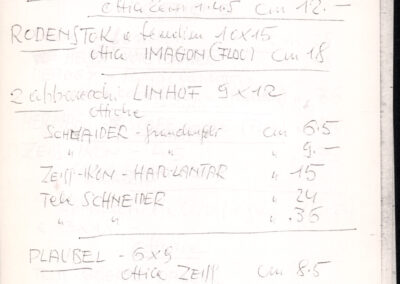 ottica Zeiss 1:4.5 cm 12.—
RODENSTOK e fendim 10x15
ottica IMAGON (FLOU) cm 18
2 apparecchi LINHOF 9x12
ottiche
SCHNAIDER - grandangoli cm 6.5
" " " 9.—
ZEISS-IKON - HAPLANTAR " 15
Tele SCHNEIDER " 24
" " " .36
PLAUBEL - 6x9
ottica ZEISS cm 8.5